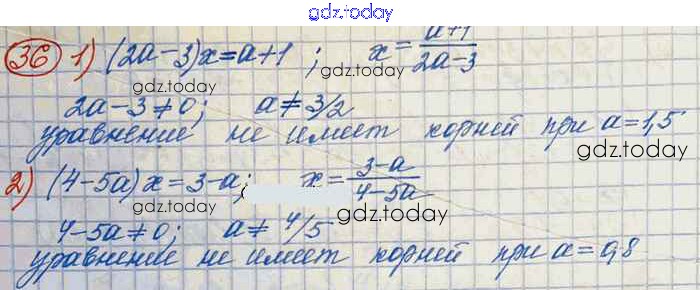 gdz.today
36 1) (2a-3)x=a+1 ; x=\frac{a+1}{2a-3}
gdz.today
gdz.today
2a-3≠0; a≠3/2
уравнение не имеет корней при a=1,5
gdz.today
2) (4-5a)x=3-a; x=\frac{3-a}{4-5a}
gdz.today
gdz.today
4-5a≠0; a≠4/5
уравнение не имеет корней при a=0,8